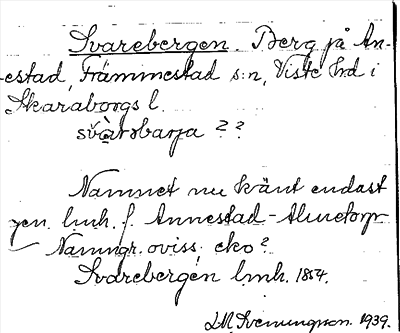 Svarebergen. Berg på An-
-estad, Främmestad s:n, Viste hd i
Skaraborgs l.
svàrəbærja ??
Namnet nu känt endast
gen. lmh. f. Annestad-Almetorp
Namngr. oviss. eko?
Svarebergen lmh. 1854.
Svenungson. 1939.